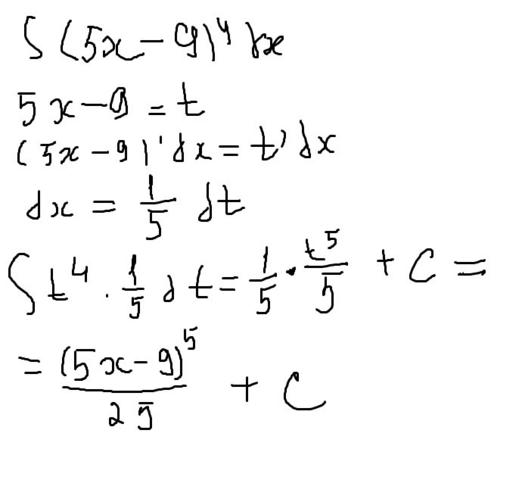 ∫ (5x − 9)⁴ dx
5x − 9 = t
(5x − 9)' dx = t' dx
dx = 1/5 dt
∫ t⁴ · 1/5 dt = 1/5 · t⁵/5 + C =
= (5x − 9)⁵/25 + C